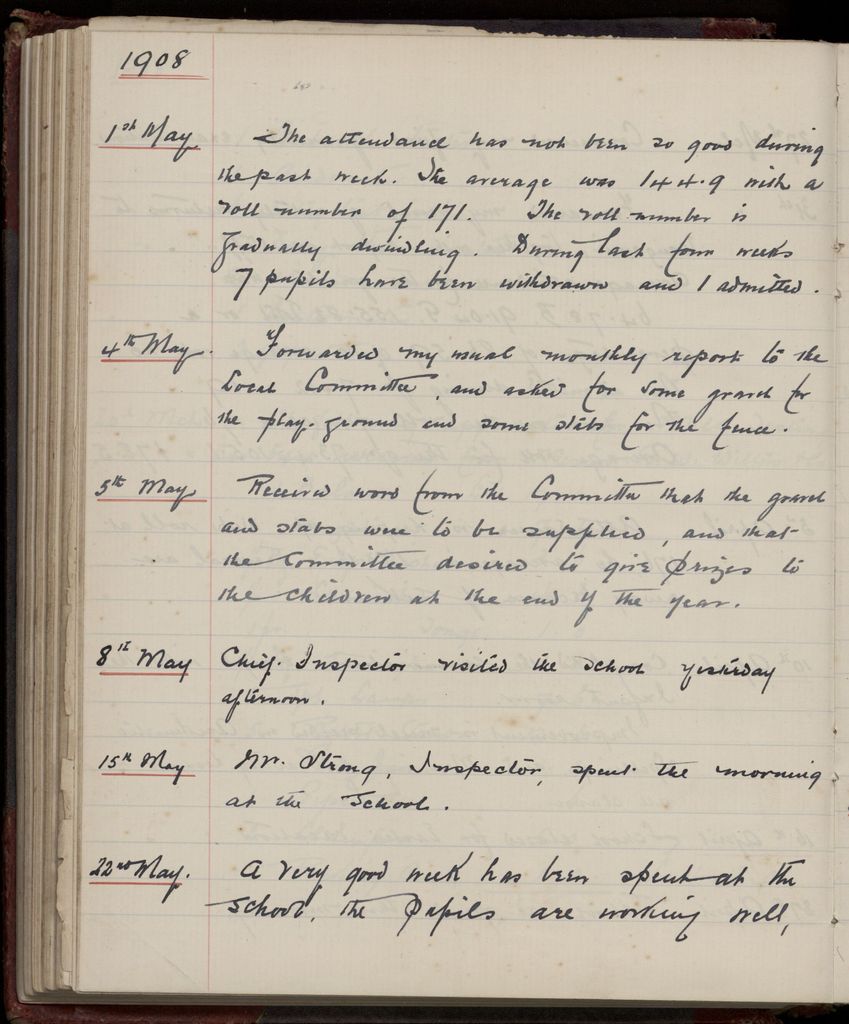 1908
1st May The attendance has not been so good during
the past week. The average was 144.9 with a
roll number of 171. The roll number is
gradually dwindling. During last four weeks
7 pupils have been withdrawn and 1 admitted.
4th May. Forwarded my usual monthly report to the
Local Committee, and asked for some gravel for
the play-ground and some slabs for the fence.
5th May Received word from the Committee that the gravel
and slabs were to be supplied, and that
the Committee desired to give prizes to
the children at the end of the year.
8th May Chief Inspector visited the school yesterday
afternoon.
15th May Mr. Strong, Inspector, spent the morning
at the School.
22nd May. A very good week has been spent at the
School, the Pupils are working well,